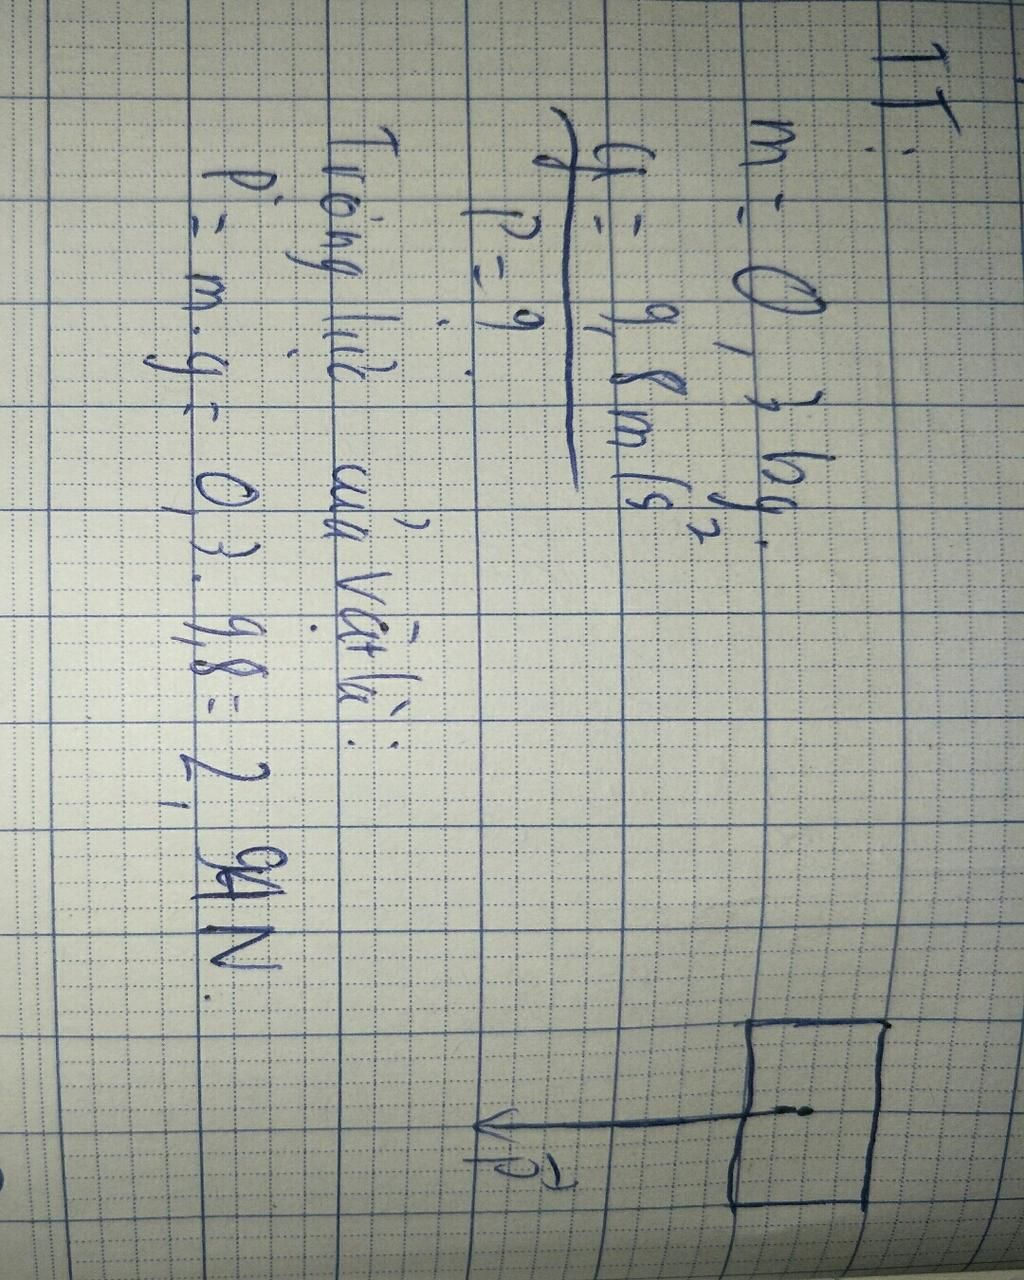 TT:
m = 0,3 kg.
g = 9,8 m/s²
P = ?
Trọng lực của vật là:
P = m.g = 0,3.9,8 = 2,94 N.
P